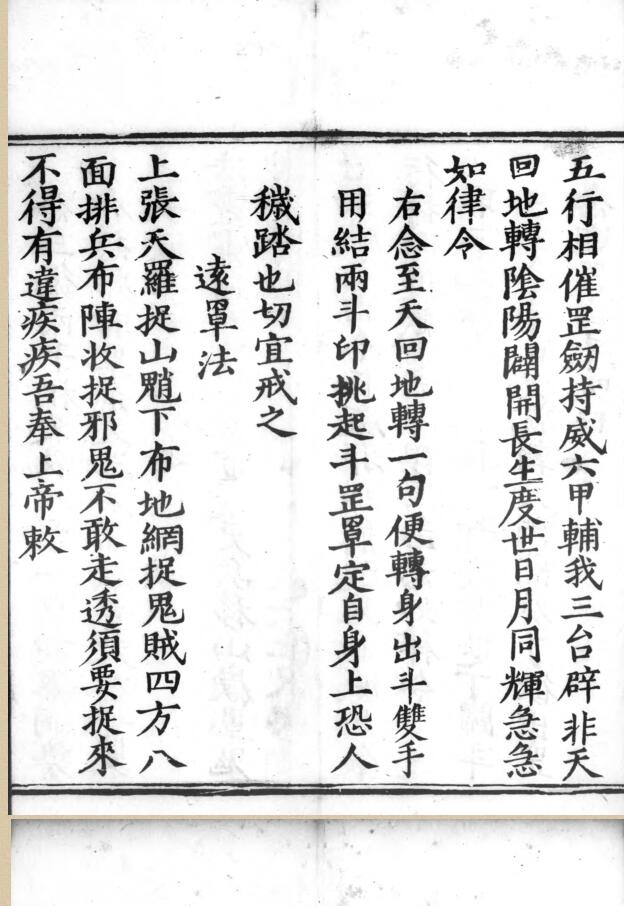 五行相催罡劒持威六甲輔我三台辟非天
回地轉陰陽闢開長生度世日月同輝急急
如律令
右念至天回地轉一句便轉身出斗雙手
用結兩斗印挑起斗罡罩定自身上恐人
穢踏也切宜戒之
遠罩法
上張天羅捉山魈下布地網捉鬼賊四方八
面排兵布陣收捉邪鬼不敢走透須要捉來
不得有違疾疾吾奉上帝敕